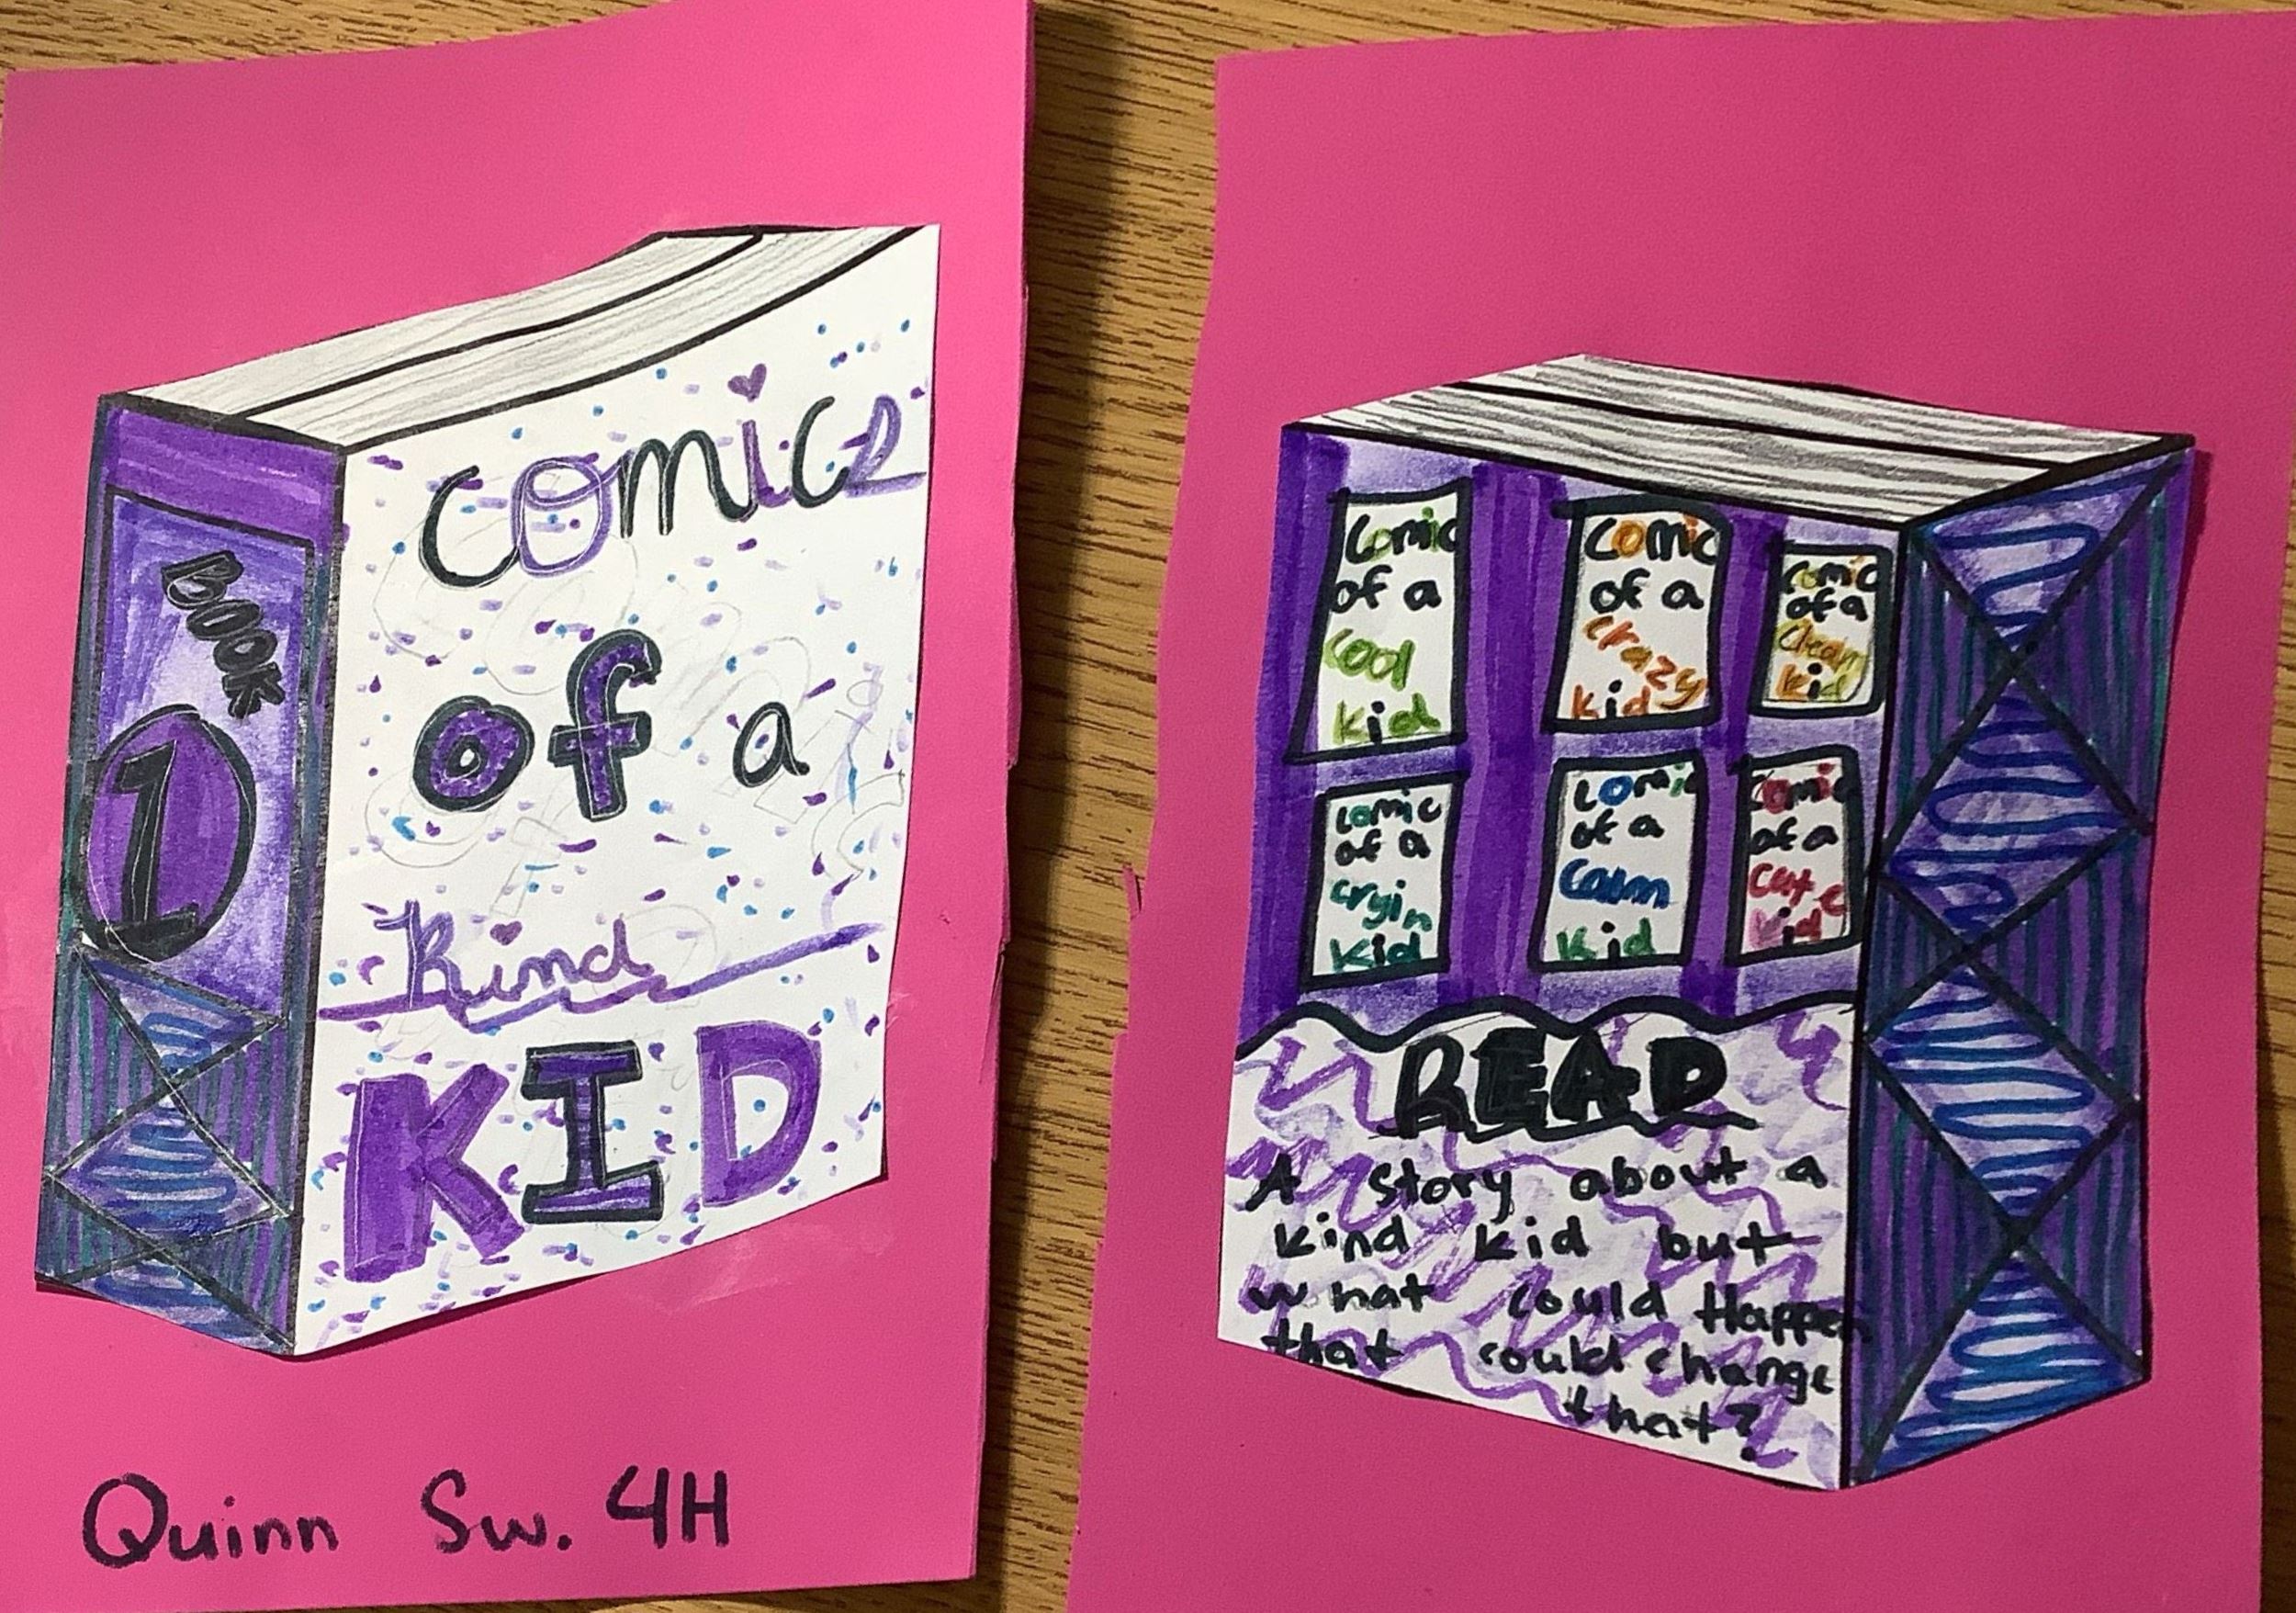 BOOK
1
comics
of a
Kind
KID
Quinn Sw. 4H
Comic
of a
cool
kid
Comic
of a
crazy
kid
Comic
of a
Clean
kid
comic
of a
cryin
kid
comic
of a
calm
kid
Comic
of a
cute
kid
READ
A story about a
kind kid but
what could Happen
that could change
that?